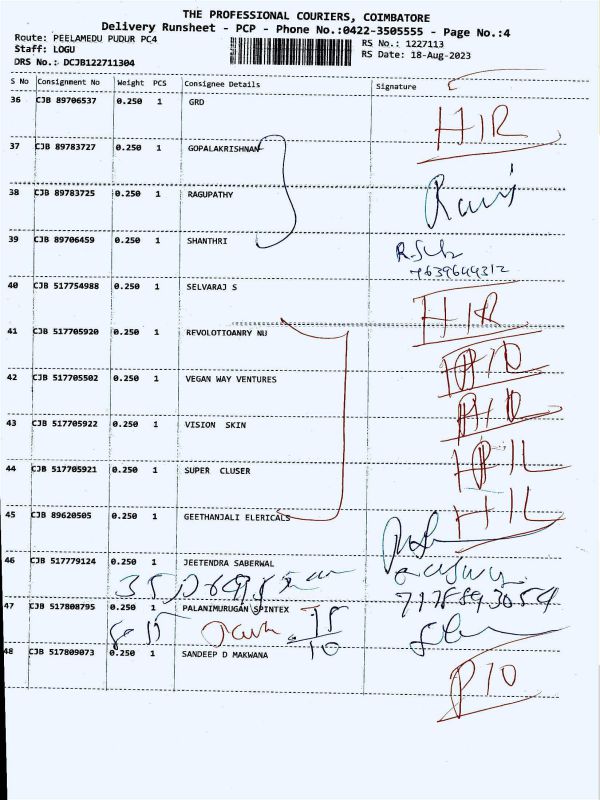 THE PROFESSIONAL COURIERS, COIMBATORE
Delivery Runsheet - PCP - Phone No.:0422-3505555 - Page No.:4
Route: PEELAMEDU PUDUR PC4
RS No.: 1227113
Staff: LOGU
RS Date: 18-Aug-2023
DRS No.: DCJB122711304
S No Consignment No Weight PCS Consignee Details Signature
36 CJB 89706537 0.250 1 GRD
HIR
37 CJB 89783727 0.250 1 GOPALAKRISHNAN
38 CJB 89783725 0.250 1 RAGUPATHY
Ravi
39 CJB 89706459 0.250 1 SHANTHRI
40 CJB 517754988 0.250 1 SELVARAJ S
HIR
41 CJB 517705920 0.250 1 REVOLOTIOANRY NU
42 CJB 517705502 0.250 1 VEGAN WAY VENTURES
43 CJB 517705922 0.250 1 VISION SKIN
44 CJB 517705921 0.250 1 SUPER CLUSER
45 CJB 89620505 0.250 1 GEETHANJALI ELERICALS
HIL
46 CJB 517779124 0.250 1 JEETENDRA SABERWAL
47 CJB 517808795 0.250 1 PALANIMURUGAN SPINTEX
48 CJB 517809073 0.250 1 SANDEEP D MAKWANA
PIO